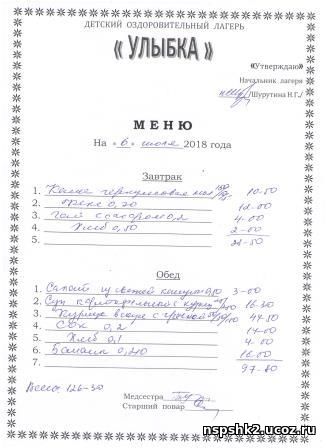 ДЕТСКИЙ ОЗДОРОВИТЕЛЬНЫЙ ЛАГЕРЬ
« УЛЫБКА »
«Утверждаю»
Начальник лагеря
/Шурутина Н.Г./
МЕНЮ
На «6» июля 2018 года
Завтрак
1. Каша геркулесовая 10-50
2. 0,20 12-00
3. Чай с сахаром 0,2 4-00
4. Хлеб 0,50 2-00
5. 28-50
Обед
1. Салат из свежей капусты 3-00
2. Суп картофельный с курицей 16-30
3. Курица в соусе с гречкой 44-50
4. Сок 0,2 14-00
5. Хлеб 0,1 4.00
6. Бананы 0,210 16-00
7. 97-80
Всего: 126-30
Медсестра
Старший повар
nspshk2.ucoz.ru